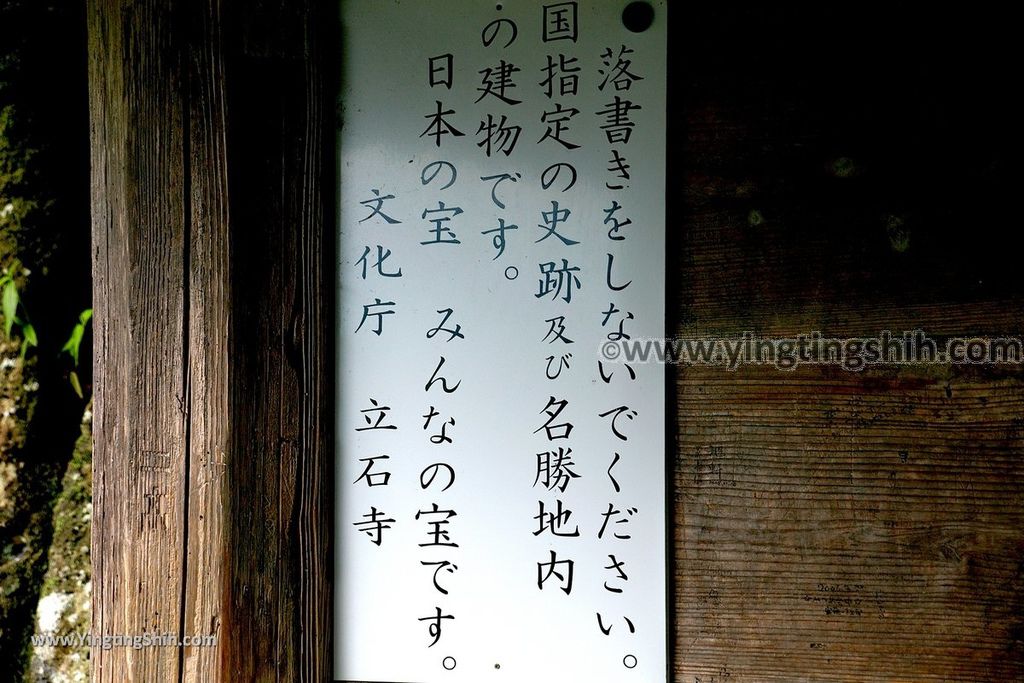 落書きをしないでください。
国指定の史跡及び名勝地内
の建物です。
日本の宝 みんなの宝です。
文化庁 立石寺
©www.yingtingshih.com
www.YingtingShih.com